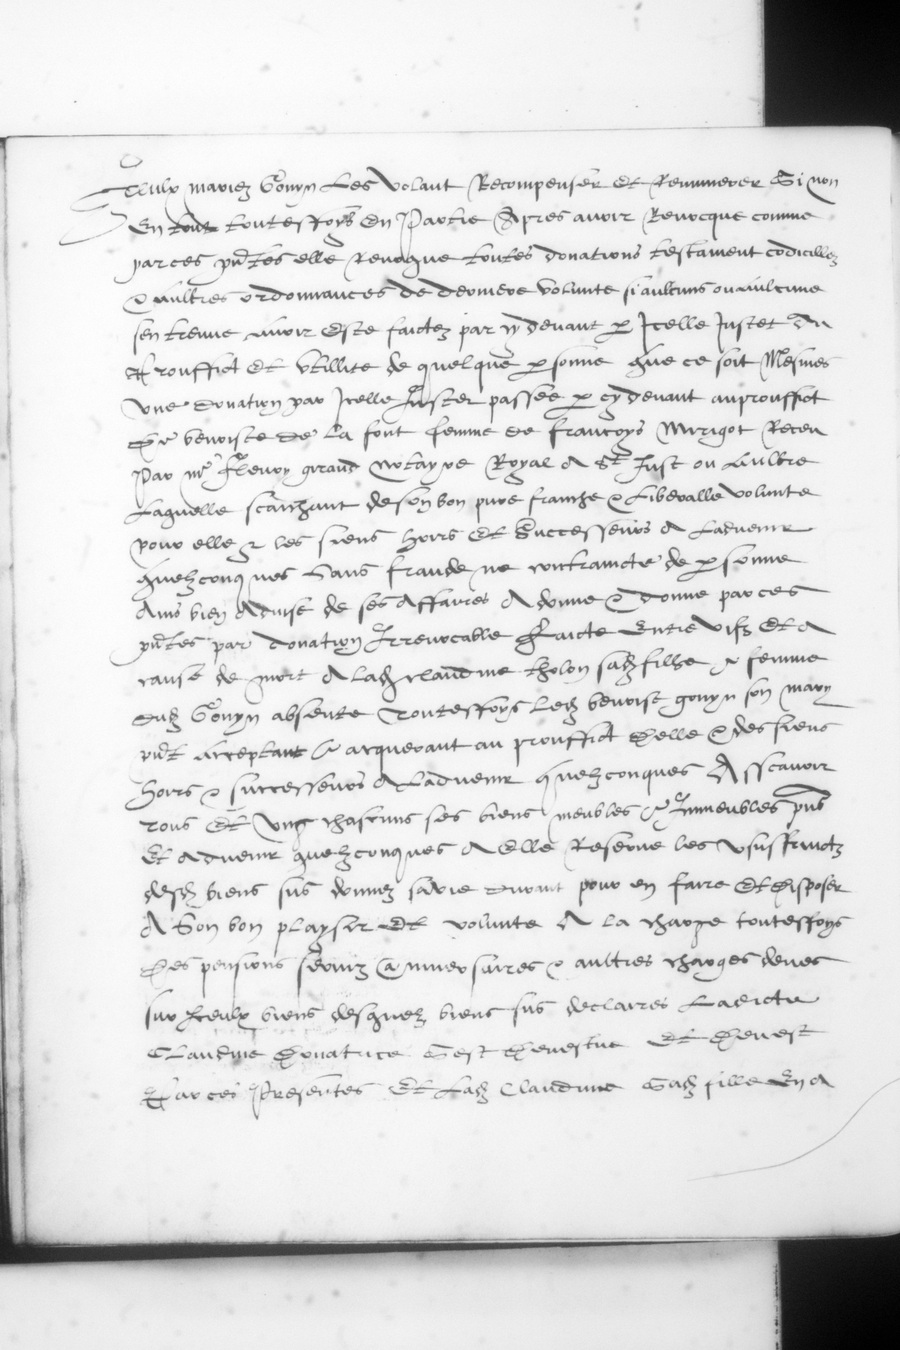 Iceulx mariez Gonyn Les volant Recompenser Et Remunerer Si non
En tout touteffoys En Partie Apres avoir Revocque comme
par ces pntes elle Revoque toutes donations testament codicilles
& aultres ordonnances de derniere volunte si aultuns ou aulcune
sen treuve avoir este faictez par cy devant p Icelle Juster Au
Prouffict Et utillite de quelque psonne Que ce soit Mesmes
Une donation par Icelle Juster passee p cy devant au prouffict
De benoiste De La font femme de francoys Mirigot Receu
Par me Fleury giraud notayre Royal A St Just ou Aultre
Laquelle scaichant de son bon pure franche & Liberalle volunte
pour elle & les siens hoirs Et Successeurs A Ladvenir
Quelzconques Sans fraude ne contraincte de psonne
Ains bien Advise de ses Affaires A donne & donne par ces
pntes par donation Irrevocable Faicte Entre vifz Et A
cause de mort A lad Claudine tholon sad fille & femme
dud Gonyn absente Touteffoys led benoist gonyn son mary
pnt Acceptant & acquerant au prouffict Delle & des siens
hoirs & successeurs A Ladvenir Quelzconques Asscavoir
Tous Et Ung chascuns ses biens meubles & Immeubles pns
Et Advenir quelzconques A Elle Reserve les Usuffruictz
desd biens sus donnez sa vie durant pour en faire Et Disposer
A Son bon playsir Et volunte A la charge touteffoys
Des pensions serviz Anniversaires & aultres charges deues
sur Iceulx biens desquelz biens sus declaires Ladicte
Claudine Donatrice Sest Devestue Et Devest
Par ces Presentes Et Lad Claudine Sad fille En A